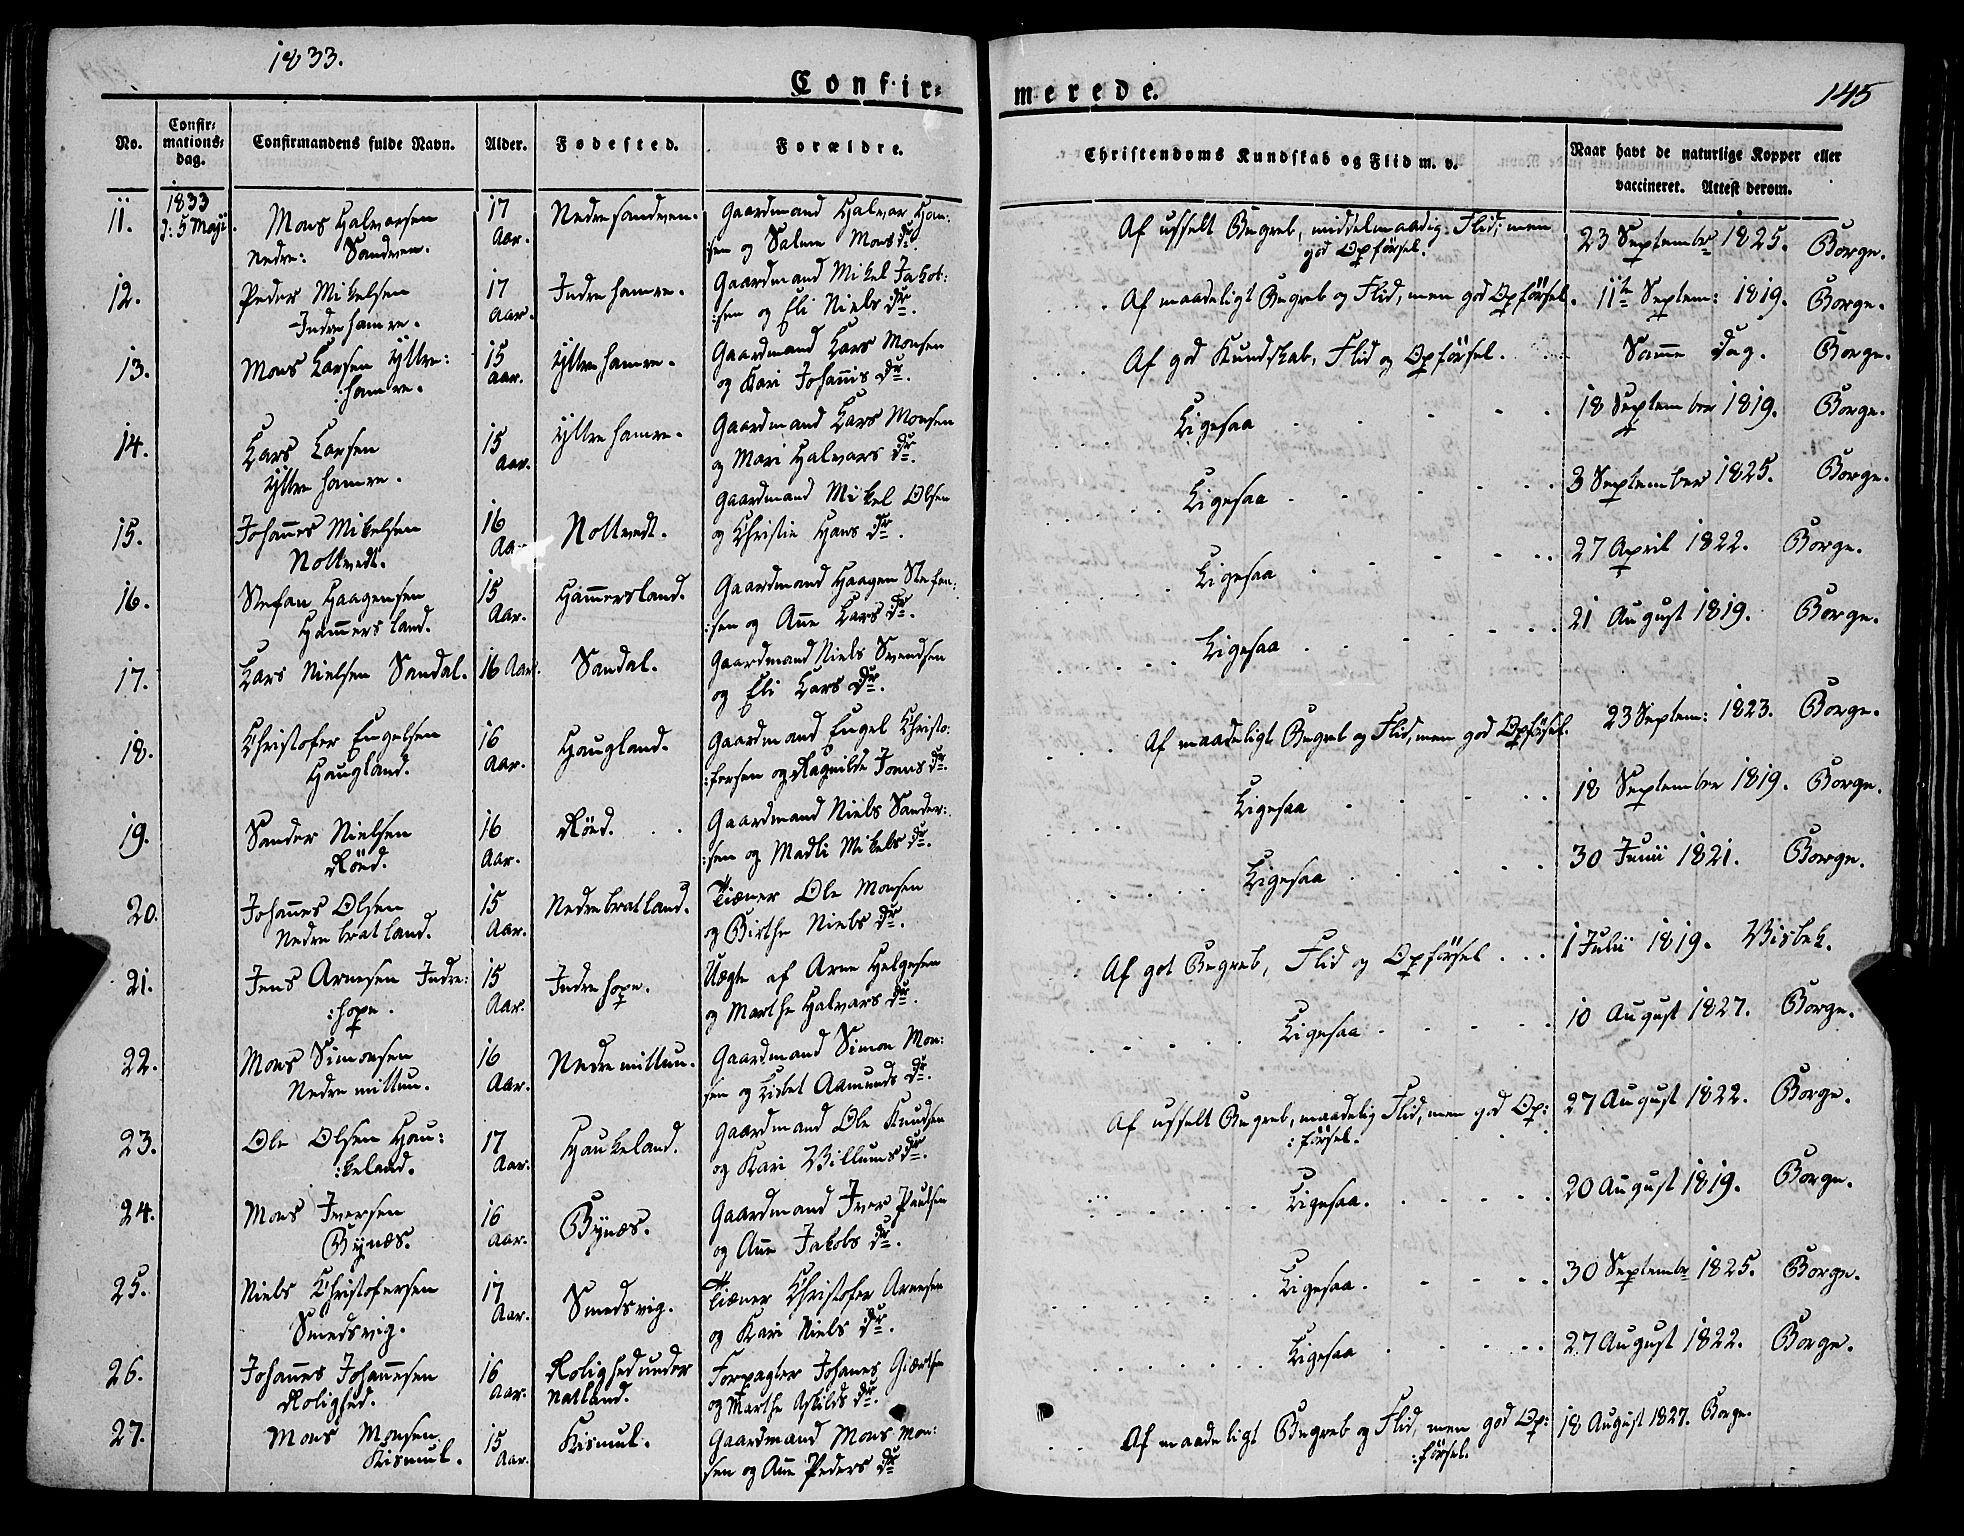 1833.
Confir=
merede.
145
No.
Confir=
mations=
dag.
Confirmandens fulde Navn.
Alder.
Fødested.
Forældre.
Christendoms Kundskab og Flid m. v.
Naar havt de naturlige Kopper eller
vaccineret. Attest derom.
11.
1833
d: 5 Maji.
Mons Halvorsen
Nedre: Sandven.
17
Aar.
Nedresandven.
Gaardmand Halvor Han:
:sen og Salme Mons Dr.
Af usselt Begreb, middelmaadig Flid, men
god Opførsel.
23 September 1825. Borge.
12.
Peder Mikelsen
Indrehamre.
17
Aar.
Indrehamre.
Gaardmand Mikel Jakob:
:sen og Eli Niels Dr.
Af maadeligt Begreb og Flid, men god Opførsel.
11te Septem: 1819. Borge.
13.
Mons Larsen Yttre:
:hamre.
15
Aar.
Yttrehamre.
Gaardmand Lars Monsen
og Kari Johannis Dr.
Af god Kundskab, Flid og Opførsel.
Samme Dag. Borge.
14.
Lars Larsen
Yttrehamre.
15
Aar.
Yttrehamre.
Gaardmand Lars Monsen
og Mari Halvors Dr.
Ligesaa
18 September 1819. Borge.
15.
Johannes Mikelsen
Nottvedt.
16
Aar
Nottvedt.
Gaardmand Mikel Olsen
og Christie Hans Dr.
Ligesaa
3 September 1825. Borge.
16.
Stefan Haagensen
Hammersland.
15
Aar.
Hammersland.
Gaardmand Haagen Stefen:
:sen og Anne Lars Dr.
Ligesaa
27 April 1822. Borge.
17.
Lars Nielsen Sandal.
16 Aar.
Sandal.
Gaardmand Niels Svendsen
og Eli Lars Dr.
Ligesaa
21 August 1819. Borge.
18.
Christofer Engelsen
Haugland.
16
Aar.
Haugland.
Gaardmand Engel Christo:
:fersen og Ragnilde Jonns Dr.
Af maadeligt Begreb og Flid, men god Opførsel.
23 Septem: 1823. Borge.
19.
Sander Nielsen
Röed.
16
Aar.
Röed.
Gaardmand Niels Sander:
:sen og Madli Mikels Dr.
Ligesaa
18 September 1819. Borge.
20.
Johannes Olsen
Nedrebratland.
15
Aar.
Nedrebratland.
Tiæner Ole Monsen
og Birthe Niels Dr.
Ligesaa
30 Junii 1821. Borge.
21.
Jens Arnesen Indre:
:hope.
15
Aar.
Indrehope.
Uægte af Arne Helgesen
og Marthe Halvors Dr.
Af got Begreb, Flid og Opførsel
1 Julii 1819. Visbek.
22.
Mons Simonsen
Nedremittun.
16
Aar.
Nedremittun.
Gaardmand Simon Mon:
sen og Lisbet Aamunds Dr.
Ligesaa
10 August 1827. Borge.
23.
Ole Olsen Hau:
:keland.
17
Aar.
Haukeland.
Gaardmand Ole Knudsen
og Kari Villums Dr.
Af usselt Begreb, maadelig Flid, men god Op:
:førsel.
27 August 1822. Borge.
24.
Mons Iversen
Bynæs.
16
Aar.
Bynæs.
Gaardmand Iver Paulsen
og Anne Jakobs Dr.
Ligesaa.
20 August 1819. Borge.
25.
Niels Christofersen
Smedsvig.
17
Aar.
Smedsvig.
Tiæner Christofer Arnesen
og Kari Niels Dr.
Ligesaa.
30 September 1825. Borge.
26.
Johannes Johannesen
Rolighed.
16
Aar.
Rolighed under
Natland.
Forpagter Johanes Giærtsen
og Marthe Askilds Dr.
Ligesaa
27 August 1822. Borge.
27.
Mons Monsen
Kismul.
15
Aar.
Kismul.
Gaardmand Mons Mon:
sen og Anne Peders Dr
Af maadeligt Begreb og Flid, men god Op:
:førsel.
18 August 1827. Borge.